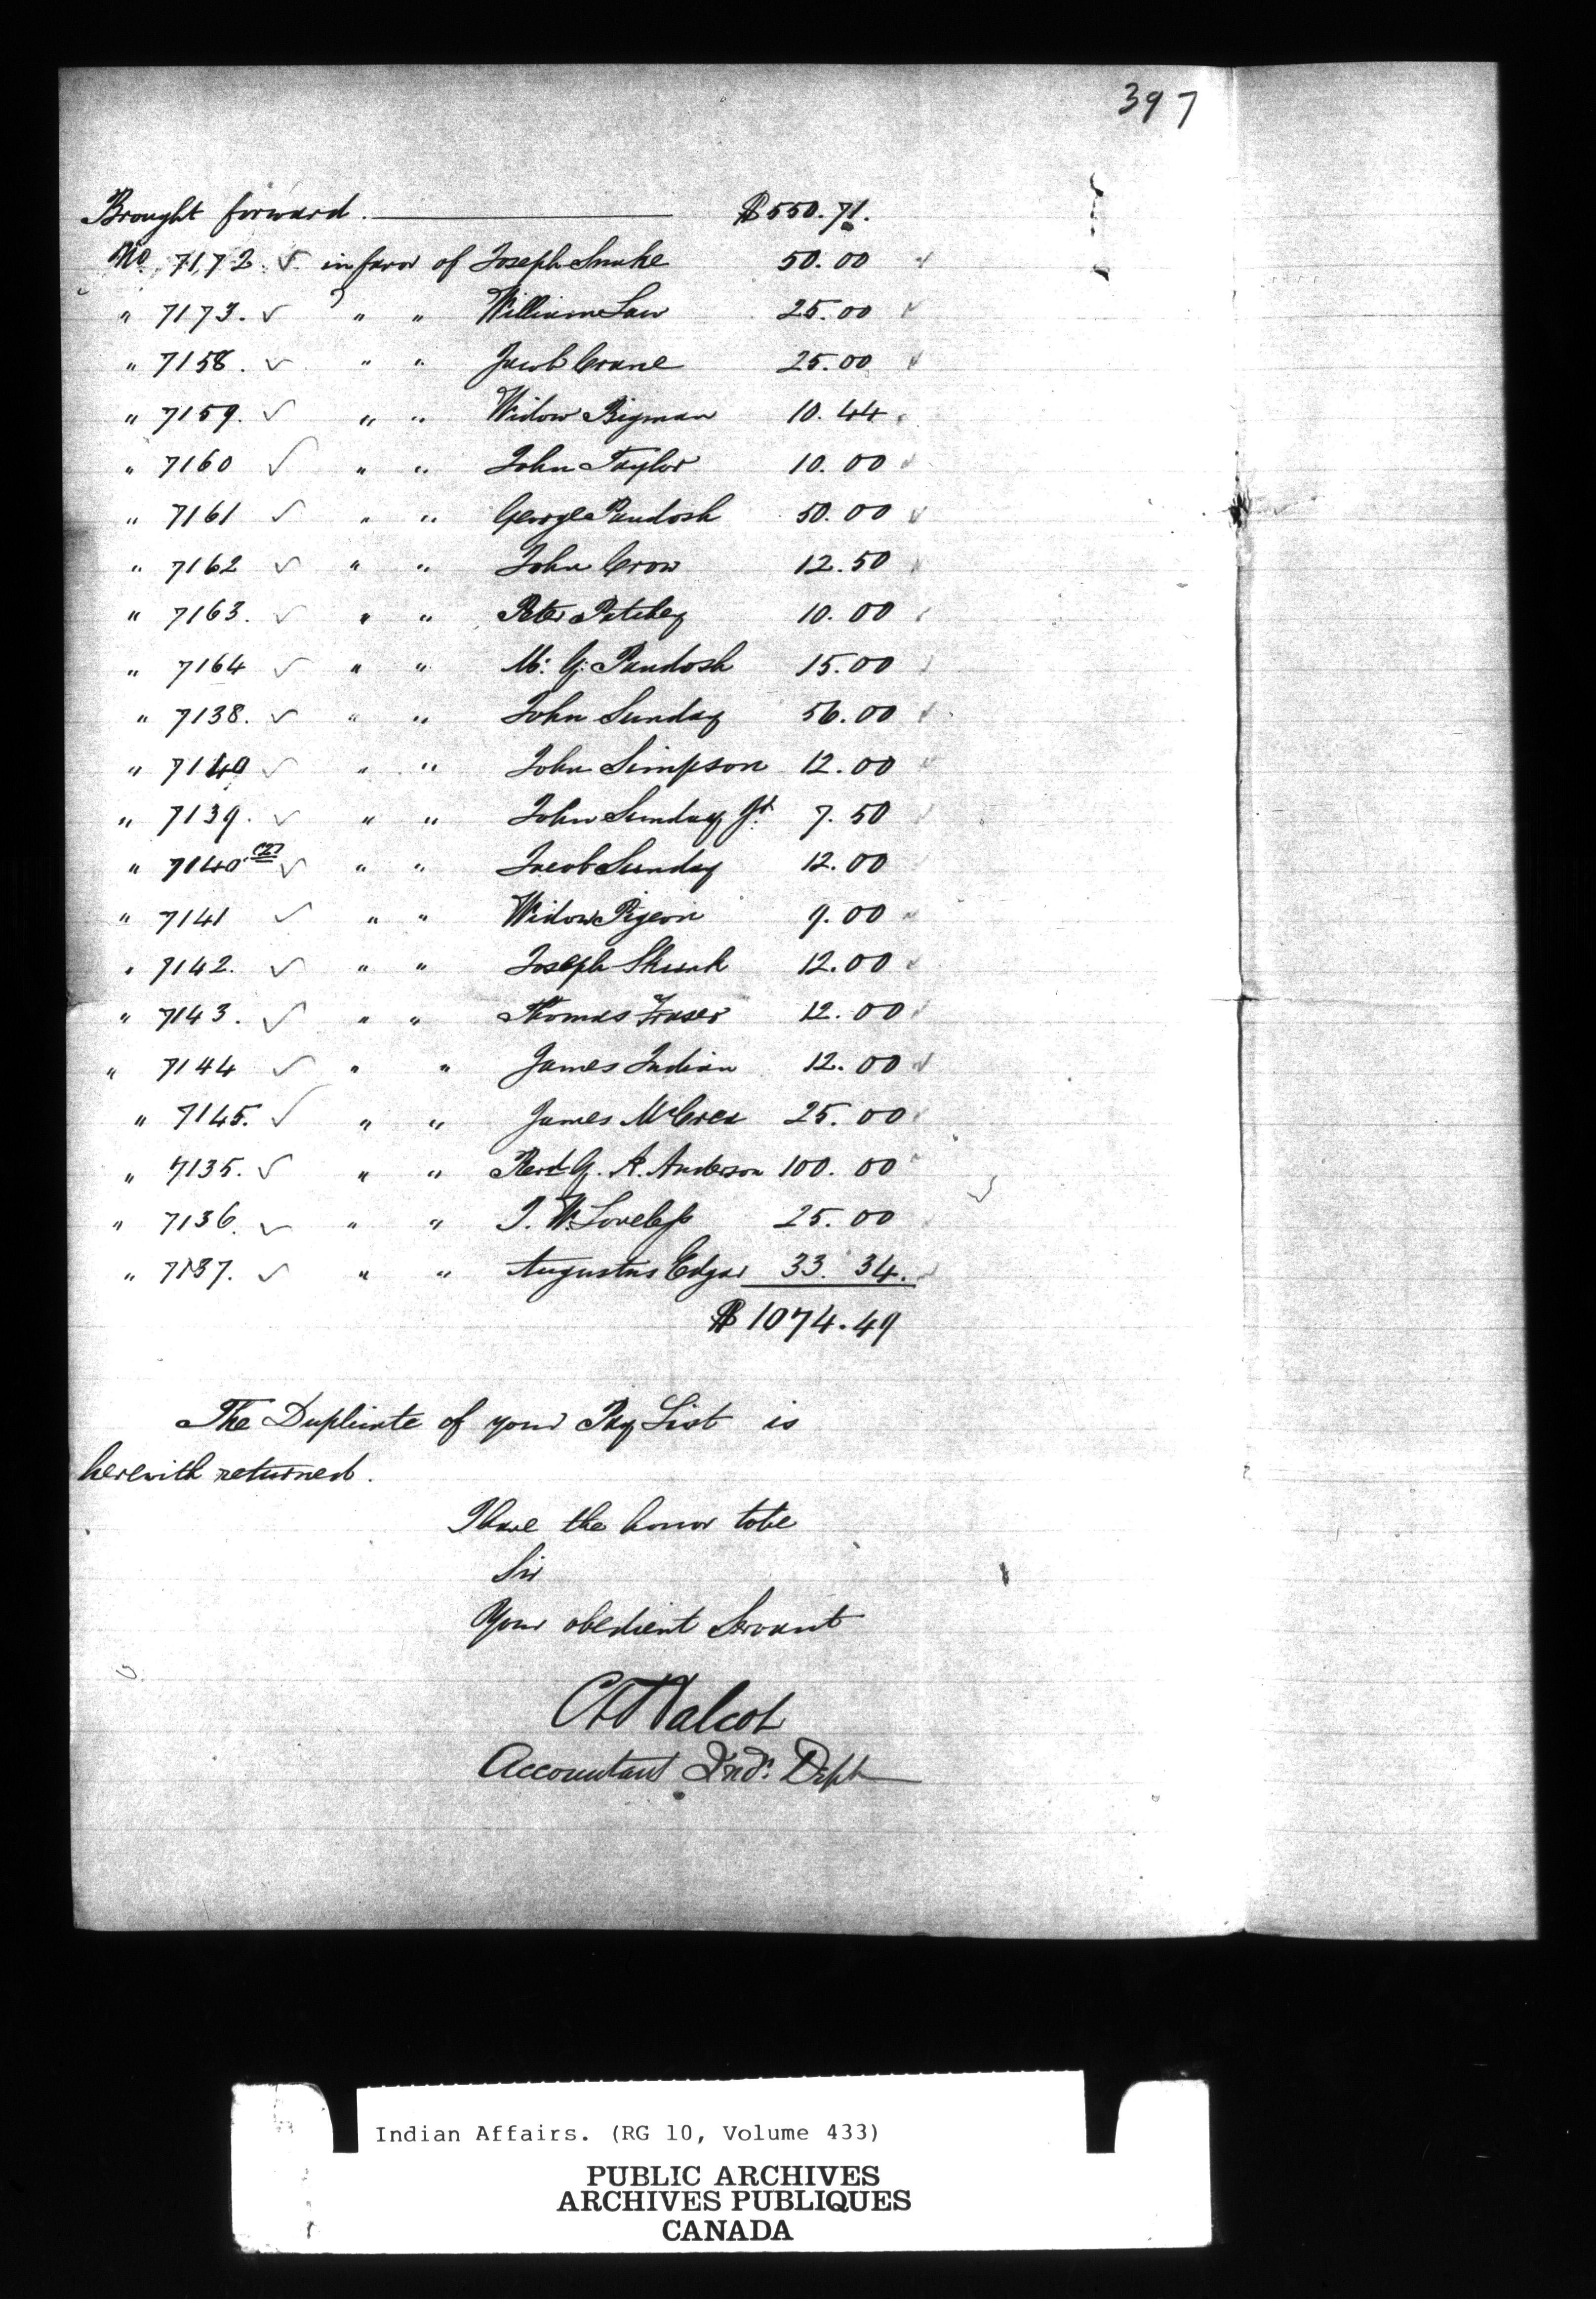 397
Brought forward. $550.71.
No 7172 ✓ in favor of Joseph Snake 50.00
" 7173. ✓ " " William Law 25.00
" 7158. ✓ " " Jacob Crane 25.00
" 7159. ✓ " " Widow Bigman 10.44
" 7160 ✓ " " John Taylor 10.00
" 7161 ✓ " " George Paudosh 50.00
" 7162 ✓ " " John Crow 12.50
" 7163. ✓ " " Peter Patchey 10.00
" 7164 ✓ " " M. G. Paudosh 15.00
" 7138. ✓ " " John Sunday 56.00
" 7149 ✓ " " John Simpson 12.00
" 7139. ✓ " " John Sunday Jr. 7.50
" 7140 (2) ✓ " " Jacob Sunday 12.00
" 7141 ✓ " " Widow Pigeon 9.00
" 7142. ✓ " " Joseph Skunk 12.00
" 7143. ✓ " " Thomas Fraser 12.00
" 7144 ✓ " " James Indian 12.00
" 7145. ✓ " " James McCrea 25.00
" 7135. ✓ " " Revd G. A. Anderson 100.00
" 7136. ✓ " " J. W. Loveless 25.00
" 7137. ✓ " " Augustus Edgar 33.34.
$1074.49
The Duplicate of your Pay List is
herewith returned.
I have the honor to be
Sir
Your obedient Servant
C T Walcot
Accountant Indn. Dept
Indian Affairs. (RG 10, Volume 433)
PUBLIC ARCHIVES
ARCHIVES PUBLIQUES
CANADA